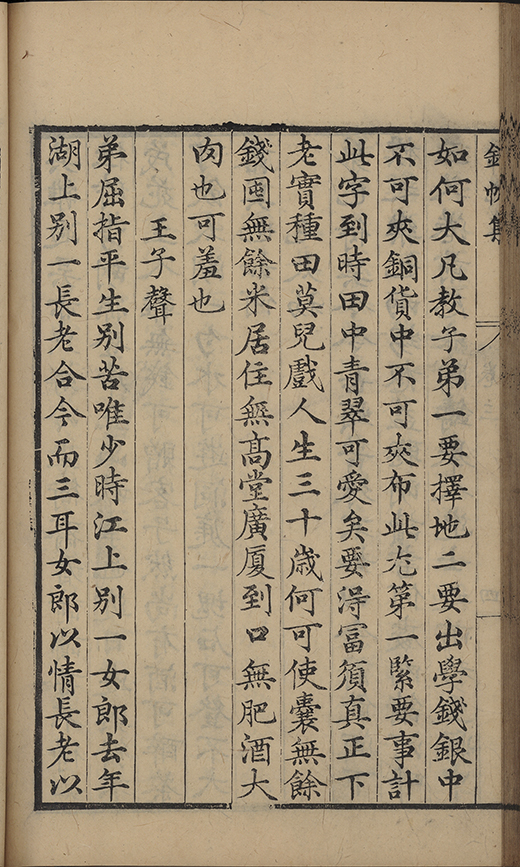 如何大凡教子弟一要擇地二要出學錢銀中
不可夾銅貨中不可夾布此尤第一緊要事計
此字到時田中青翠可愛矣要淂冨須真正下
老實種田莫兒戲人生三十歲何可使囊無餘
錢囤無餘米居住無髙堂廣厦到口無肥酒大
肉也可羞也
王子聲
弟屈指平生別苦唯少時江上別一女郎去年
湖上別一長老合今而三耳女郎以情長老以